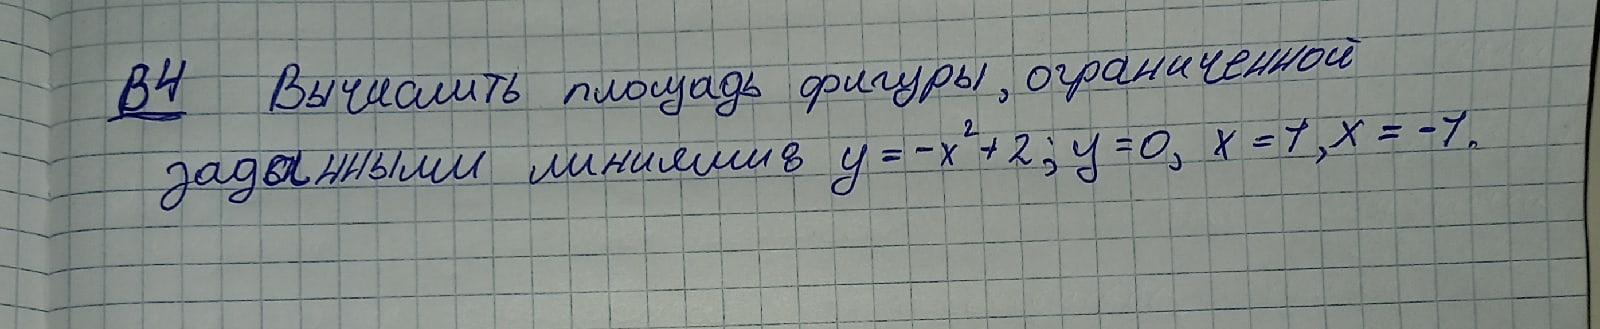 В4 Вычислить площадь фигуры, ограниченной
заданными линиями y = -x² + 2; y = 0, x = 1, x = -1.